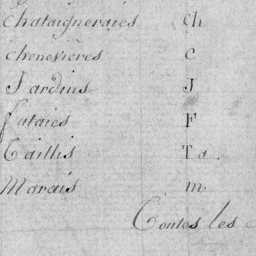 Chataigneraies Ch
chenevières C
Jardins J
futaies F
Taillis Ta.
Marais m
Toutes les